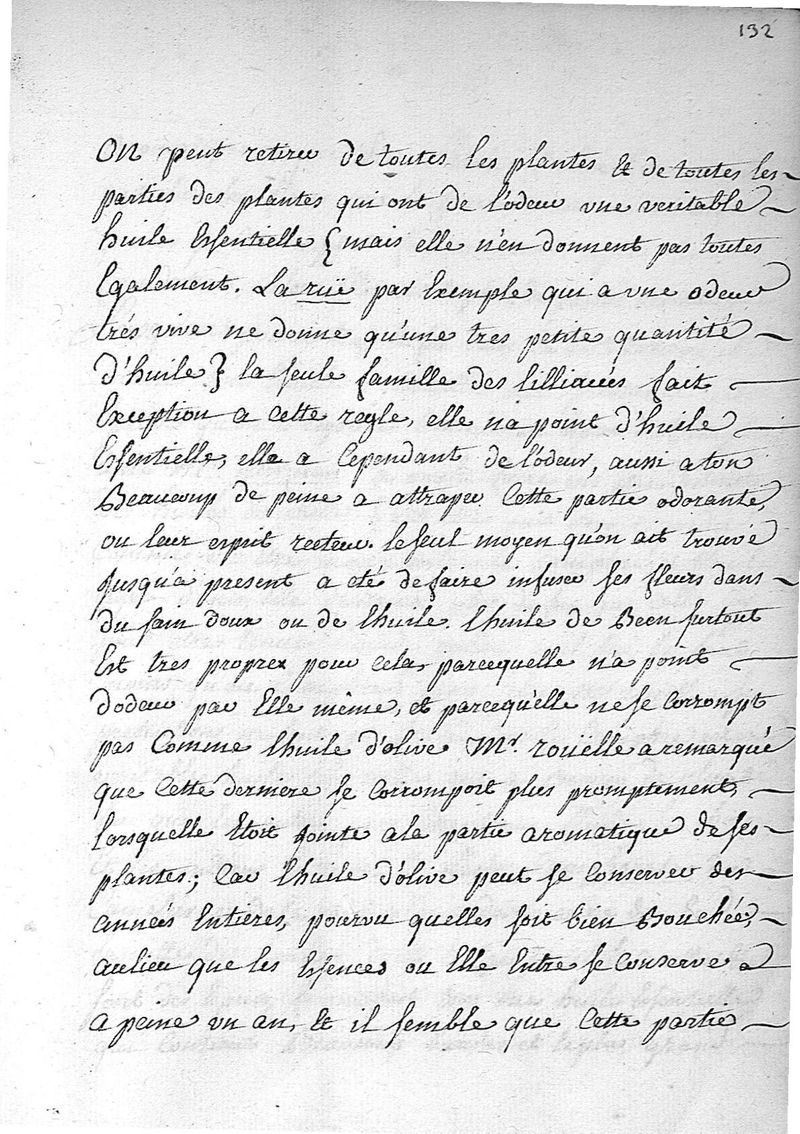 132
On peut retirer de toutes les plantes & de toutes les
parties des plantes qui ont de l'odeur une veritable
huile Essentielle { mais elle n'en donnent pas toutes
Egalement. La ruë par Exemple qui a une odeur
trés vive ne donne qu'une tres petite quantité
d'huile } la seule famille des lilliacées fait
Exception a cette regle, elle n'a point d'huile
Essentielle, elle a Cependant de l'odeur, aussi a ton
Beaucoup de peine a attraper Cette partie odorante,
ou leur esprit recteur. le seul moyen qu'on ait trouvé
Jusqu'a present a eté de faire infuser ses fleurs dans
du sain doux ou de l'huile. l'huile de Been surtout
Est tres propre pour cela, parcequelle n'a point
dodeur par Elle même, et parcequ'elle ne se Corrompt
pas Comme l'huile d'olive Mr. roüelle a remarqué
que Cette derniere se Corrompoit plus promptement,
lorsquelle Etoit Jointe a la partie aromatique de ses
plantes; Car l'huile d'olive peut se Conserver des
années Entieres, pourvu quelles soit bien Bouchée,
aulieu que les Essences ou Elle Entre se Conserve a
a peine un an, & il semble que Cette partie